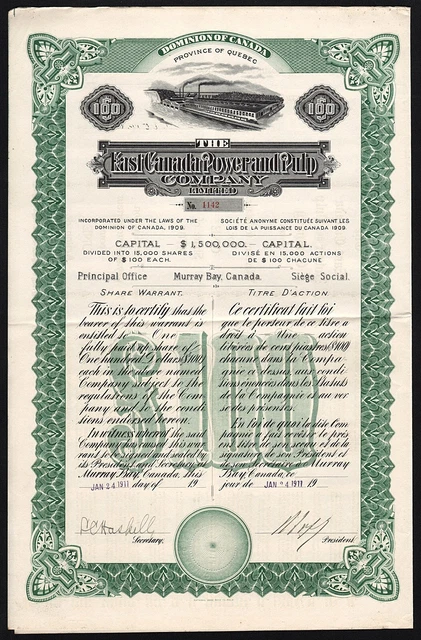 DOMINION OF CANADA
PROVINCE OF QUEBEC
100 100
THE
East Canada Power and Pulp
COMPANY
LIMITED
No. 1142
INCORPORATED UNDER THE LAWS OF THE
DOMINION OF CANADA, 1909.
SOCIÉTÉ ANONYME CONSTITUÉE SUIVANT LES
LOIS DE LA PUISSANCE DU CANADA 1909.
CAPITAL – $1,500,000. – CAPITAL.
DIVIDED INTO 15,000 SHARES
OF $100 EACH.
DIVISÉ EN 15,000 ACTIONS
DE $100 CHACUNE
Principal Office Murray Bay, Canada. Siège Social.
SHARE WARRANT.
This is to certify that the
bearer of this warrant is
entitled to One
fully paid up share of
One hundred Dollars ($100)
each in the above named
Company subject to the
regulations of the Com
pany and to the condi
tions endorsed hereon.
In witness whereof the said
Company has caused this war
rant to be signed and sealed by
its President and Secretary at
Murray Bay, Canada, this
JAN 24 1911 day of 19
TITRE D'ACTION
Ce certificat fait foi
que le porteur de ce titre a
droit à Une action
libérées de cent piastres ($100)
chacune dans la Compa
gnie ci dessus, aux con
ditions énoncées dans les statuts
de la Compagnie et au ver
so des présentes.
En foi de quoi la dite Com
pagnie a fait revêtir le prés
ent titre de son sceau et de la
signature de son Président et
de son Secrétaire à Murray
Bay, Canada, ce
jour de JAN 24 1911 19
$100
Secretary.
President.